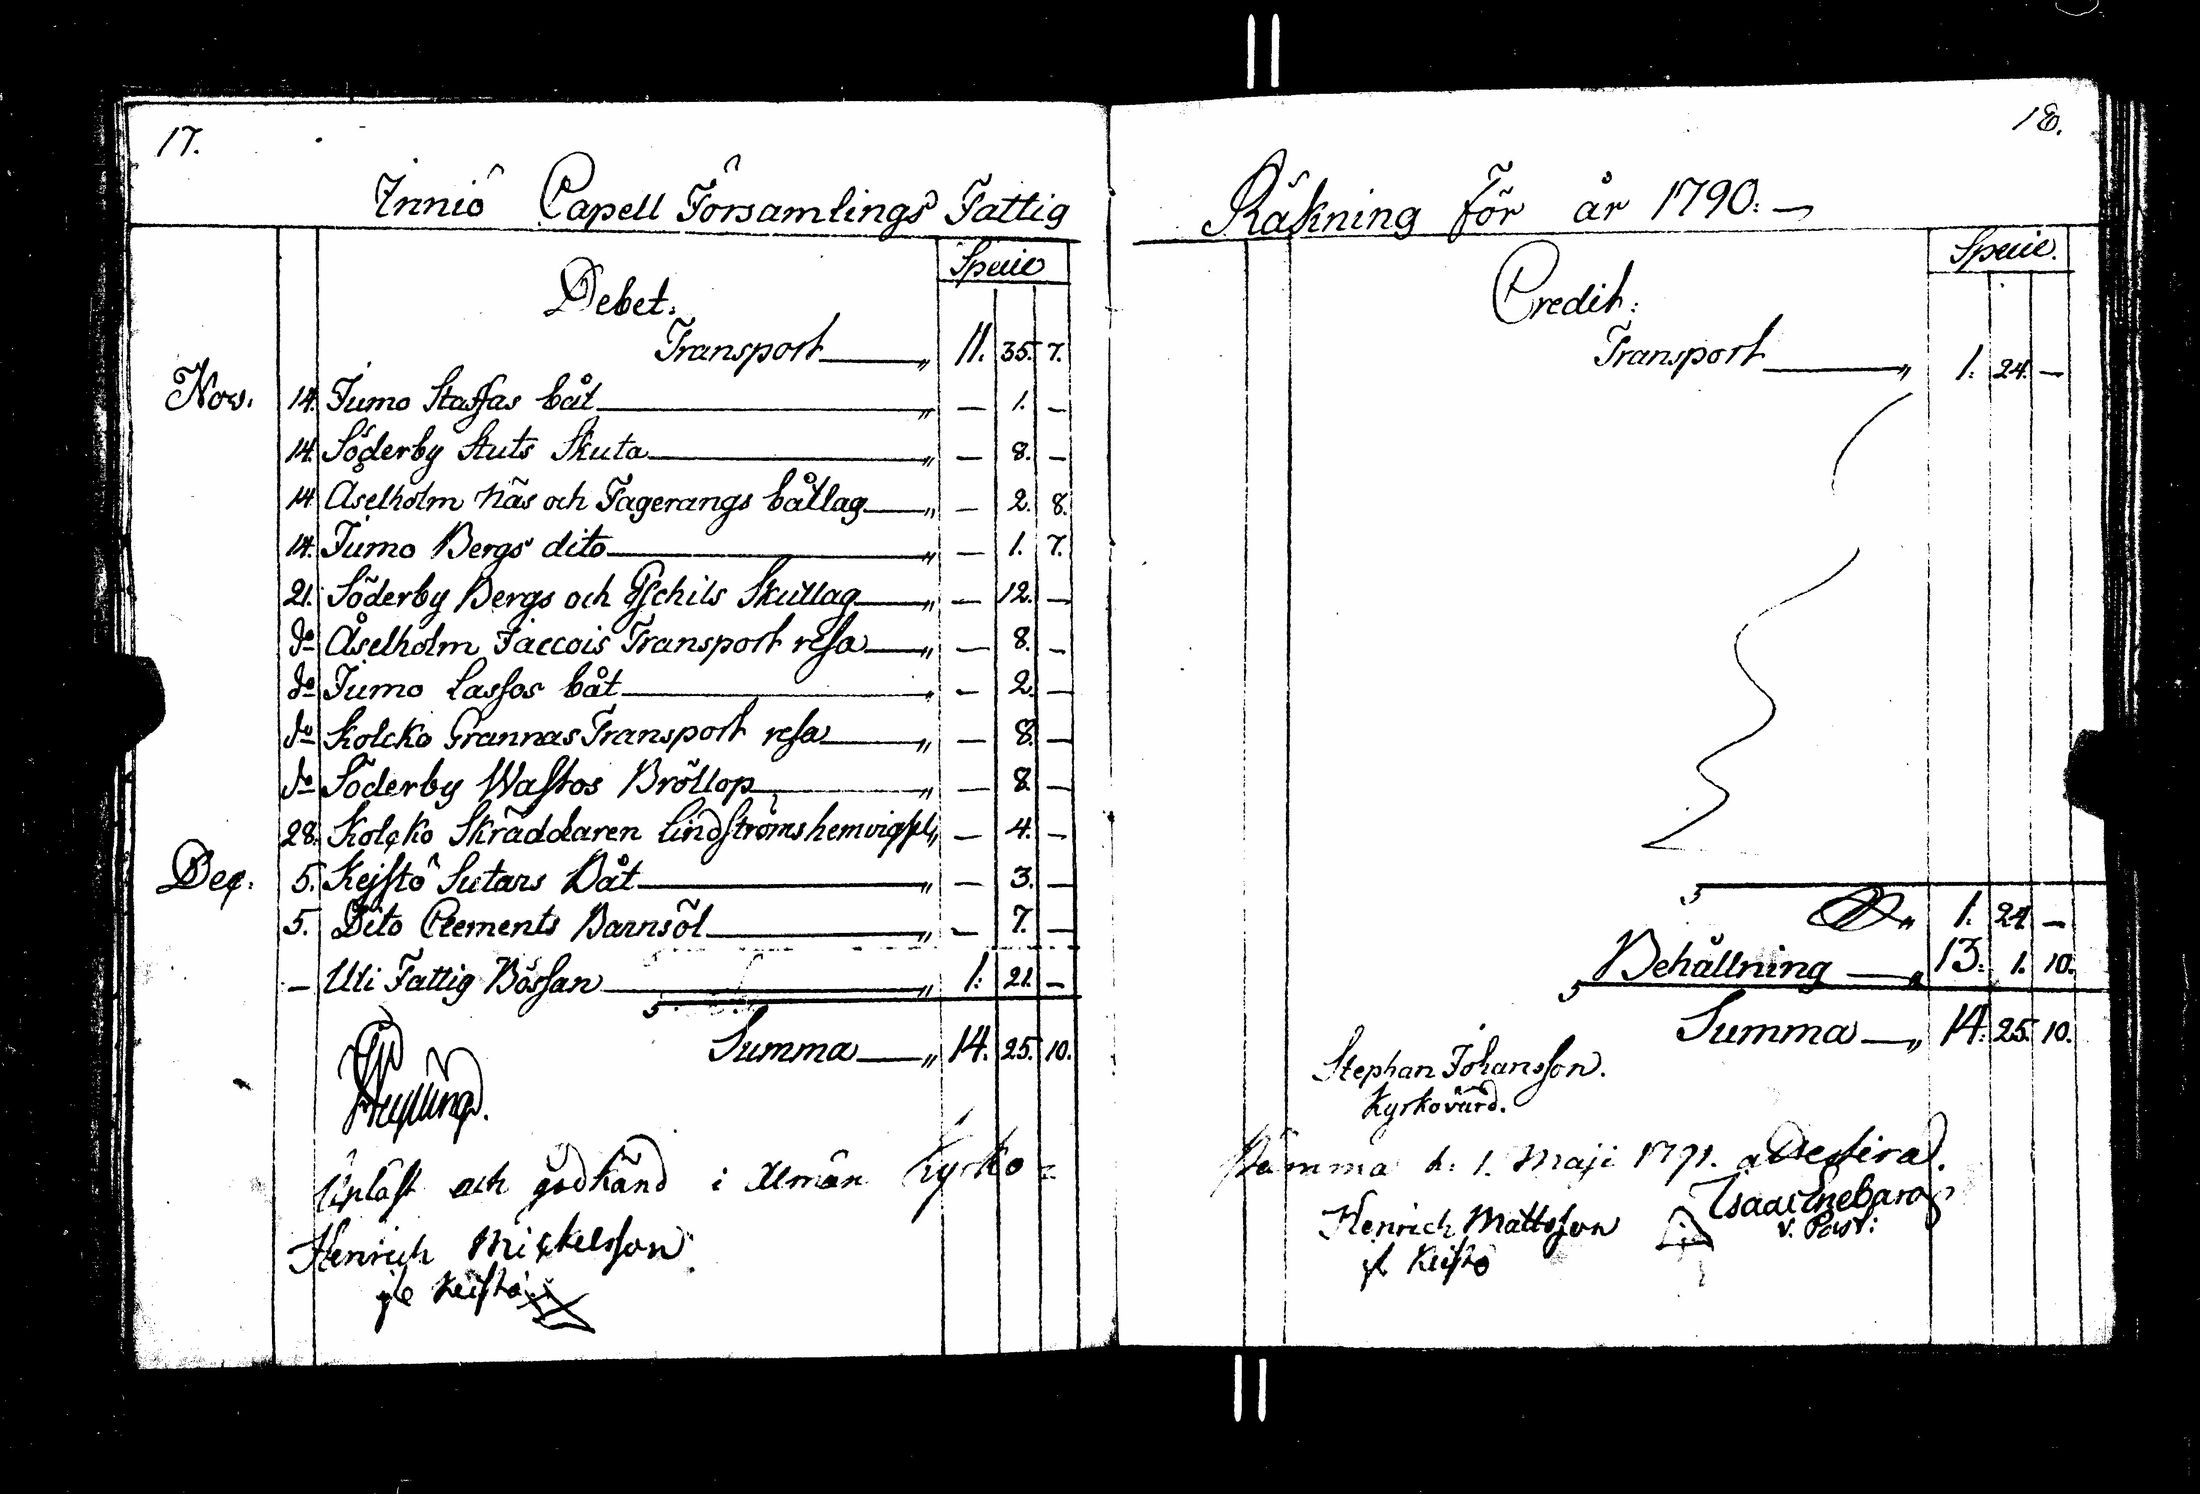 17.
Innio Capell Församlings Fattig
Specie
Debet.
Transport " 11. 35. 7.
Nov. 14. Jumo Staffas båt " — 1. —
14. Söderby Stuts Skuta " — 8. —
14. Åselholm Näs och Fagerangs båtlag " — 2. 8.
14. Jumo Bergs dito " — 1. 7.
21. Söderby Bergs och Skutlag " — 12. —
do Åselholm Jaccois Transport resa " — 8. —
do Jumo Lassos båt " — 2. —
do Kolcko Grannas Transport resa " — 8. —
do Söderby Wastos Bröllop " — 8. —
28. Kolcko Skräddaren Lindströms hemvigsel " — 4. —
Dec. 5. Kejstö Sutars Båt " — 3. —
5. Dito Clements Barnsöl " — 7. —
— Uti Fattig Bössan " 1. 21. —
Summa " 14. 25. 10.
Upläst och godkänd i Almän Kyrko-
Henrich Mickelsson
Keistö
18.
Räkning för år 1790. —
Specie.
Credit:
Transport " 1. 24. —
" 1. 24. —
Behållning " 13. 1. 10.
Summa " 14. 25. 10.
Stephan Johansson.
Kyrkovärd.
Stämma d. 1. Maji 1791.
Henrich Mattsson
Keistö
Isaac Enebarg
v. Past: